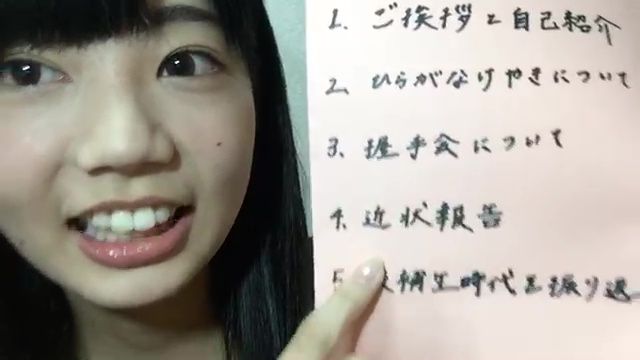 1. ご挨拶と自己紹介
2. ひらがなけやきについて
3. 握手会について
4. 近状報告
5. 補生時代を振り返